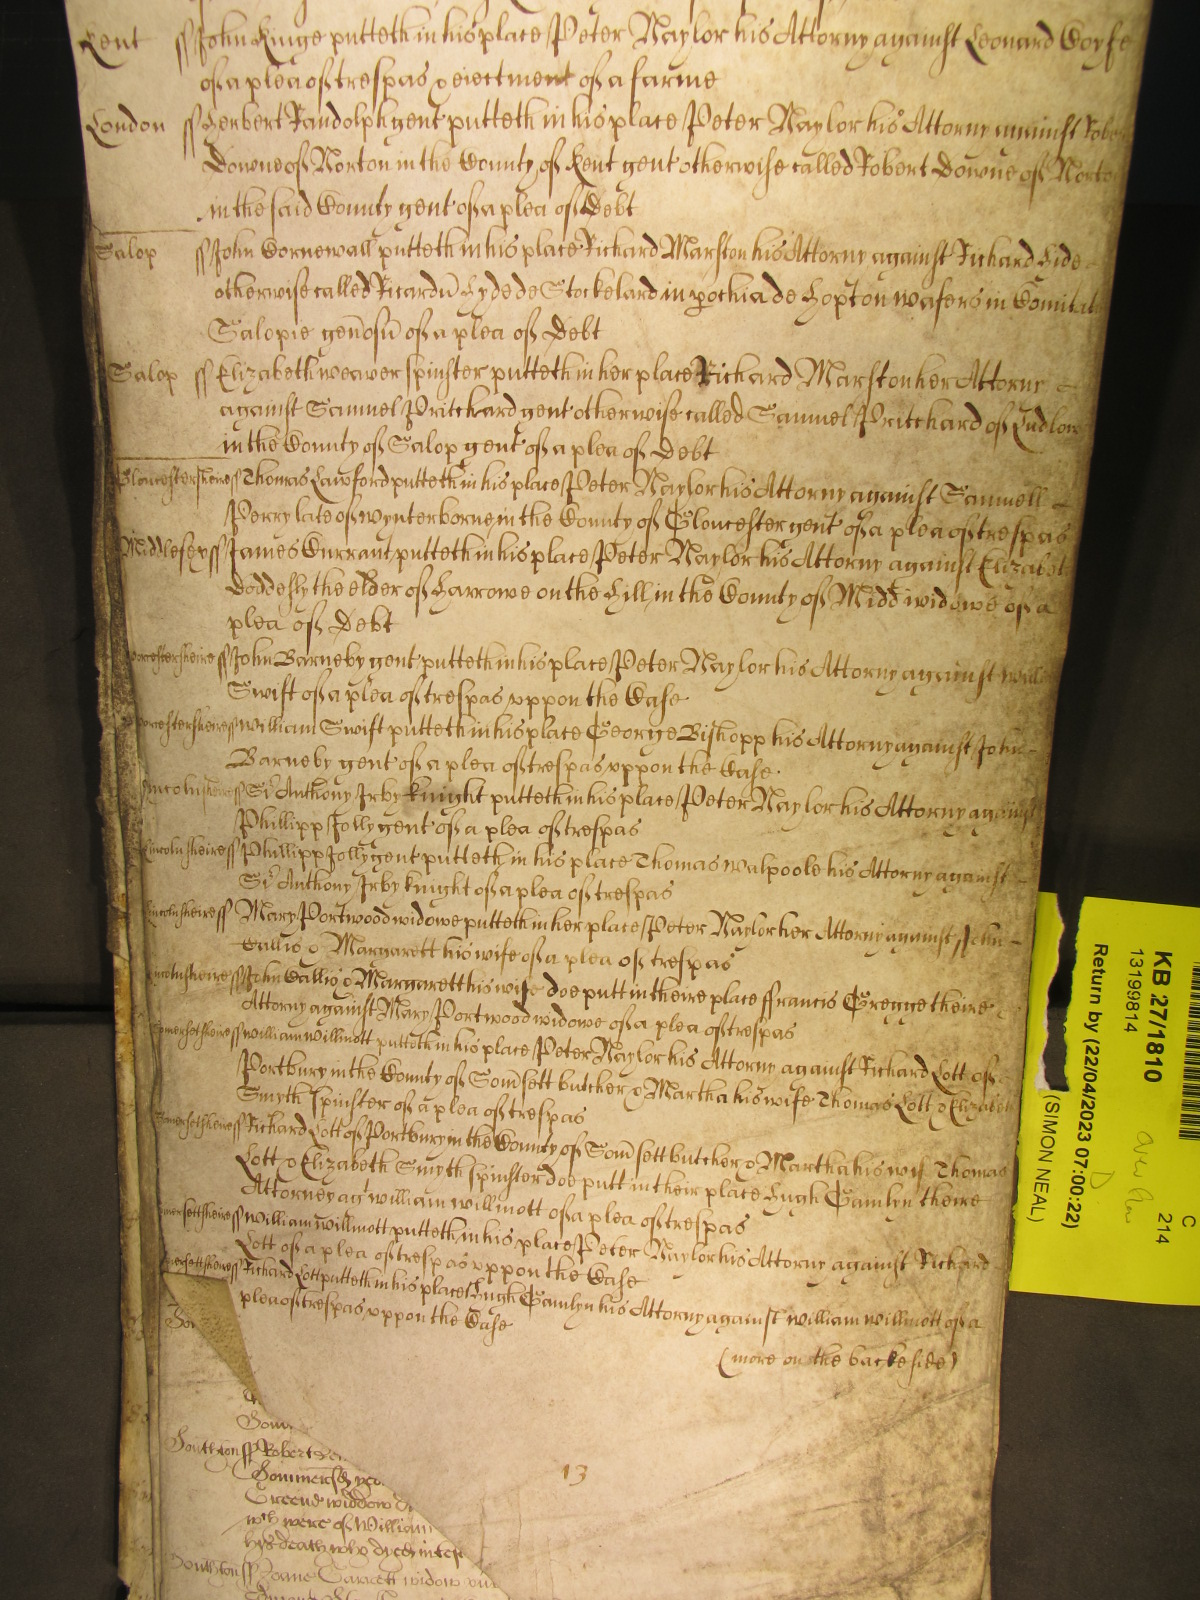 Kent ss John Kinge putteth in his place Peter Naylor his Attorny against Leonard
of a plea of trespas & eiectment of a farme
London ss Herbert Randolph gent putteth in his place Peter Naylor his Attorny against Robe
Downe of Norton in the County of Kent gent otherwise called Robert Downe of Norto
in the said County gent of a plea of Debt
Salop ss John Cornewall putteth in his place Richard Marston his Attorny against Richard Hide
otherwise called Ricardu Hyde de Stockelard in pochia de Hopton wafers in Comitat
Salopie genosu of a plea of Debt
Salop ss Elizabeth weaver spinster putteth in her place Richard Marston her Attorne
against Samuel Pritchard gent otherwise called Samuel Pritchard of Ludlow
in the County of Salop gent of a plea of Debt
Gloucestersheire ss Thomas Lawford putteth in his place Peter Naylor his Attorny against Samuell
Perry late of wynterborne in the County of Gloucester gent of a plea of trespas
Middlesex ss James Currant putteth in his place Peter Naylor his Attorny against Elizabet
Doddesly the elder of Harrowe on the Hill in the County of Midd widowe of a
plea of Debt
worcestersheire ss John Barneby gent putteth in his place Peter Naylor his Attorny against Willi
Swift of a plea of trespas vppon the Case
worcestersheire ss William Swift putteth in his place George Bishopp his Attorny against John
Barneby gent of a plea of trespas vppon the Case
Lincolnsheire ss Sr Anthony Irby knight putteth in his place Peter Naylor his Attorny against
Phillipp Jolly gent of a plea of trespas
Lincolnsheire ss Phillipp Jolly gent putteth in his place Thomas walpoole his Attorny against
Sr Anthony Irby knight of a plea of trespas
Lincolnsheire ss Mary Portwood widowe putteth in her place Peter Naylor her Attorny against John
Callis & Margarett his wife of a plea of trespas
Lincolnsheire ss John Callis & Margarett his wife doe putt in theire place ffrancis Gregge theire
Attorny against Mary Portwood widowe of a plea of trespas
Somersetsheire ss william Willmott putteth in his place Peter Naylor his Attorny against Richard Lott of
Portbury in the County of Somsett butcher & Martha his wife Thomas Lott & Elizabeth
Smyth spinster of a plea of trespas
Somersetsheire ss Richard Lott of Portbury in the County of Somsett butcher & Martha his wife Thomas
Lott & Elizabeth Smyth spinster doe putt in their place Hugh Gamlyn theire
Attorney agt william willmott of a plea of trespas
Somersettsheire ss william willmott putteth in his place Peter Naylor his Attorny against Richard
Lott of a plea of trespas vppon the Case
Somersettsheire ss Richard Lott putteth in his place Hugh Gamlyn his Attorny against william willmott of a
plea of trespas vppon the Case
(more on the backeside)
So
Som
Southton ss Robert
Sommersh
Greene widdow
wch were of William
his death who dyed inter
Southton ss Joane Garrett widow
13
KB 27/1810
13199814
Return by (22/04/2023 07:00:22)
(SIMON NEAL)
C
214